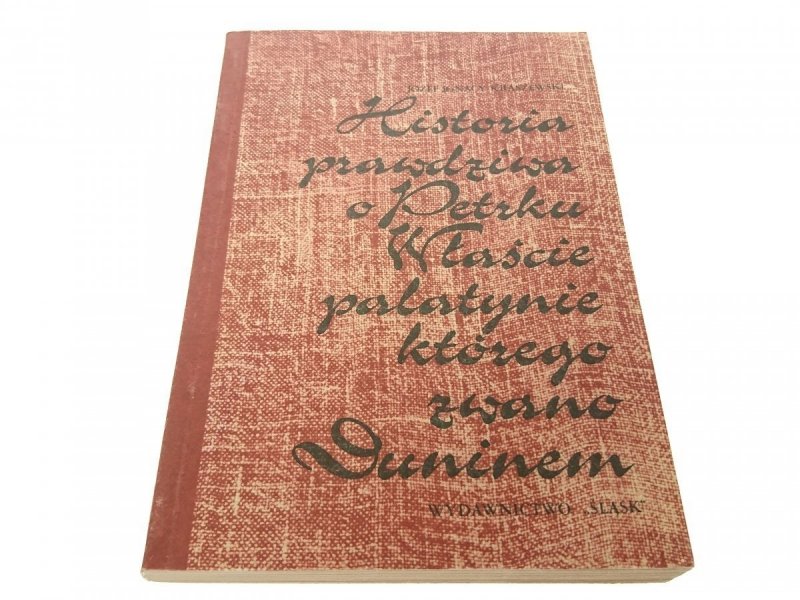 JÓZEF IGNACY KRASZEWSKI
Historia
prawdziwa
o Petrku
Właście
palatynie
którego
zwano
Duninem
WYDAWNICTWO „ŚLĄSK”